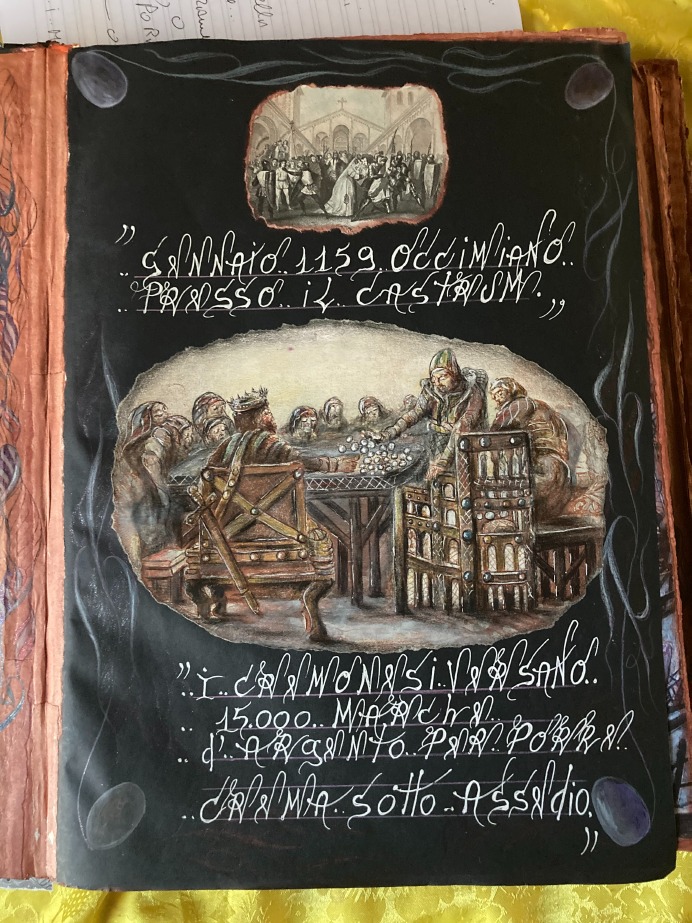 "GENNAIO..1159. OCCIMIANO..
..PRESSO..iL..CASTRUM.„
"..I..CREMONESI..VERSANO..
..15.000..MARCHE..
..d'ARGENTO..PER..PORRE..
..CREMA..SOTTO..ASSEDIO."